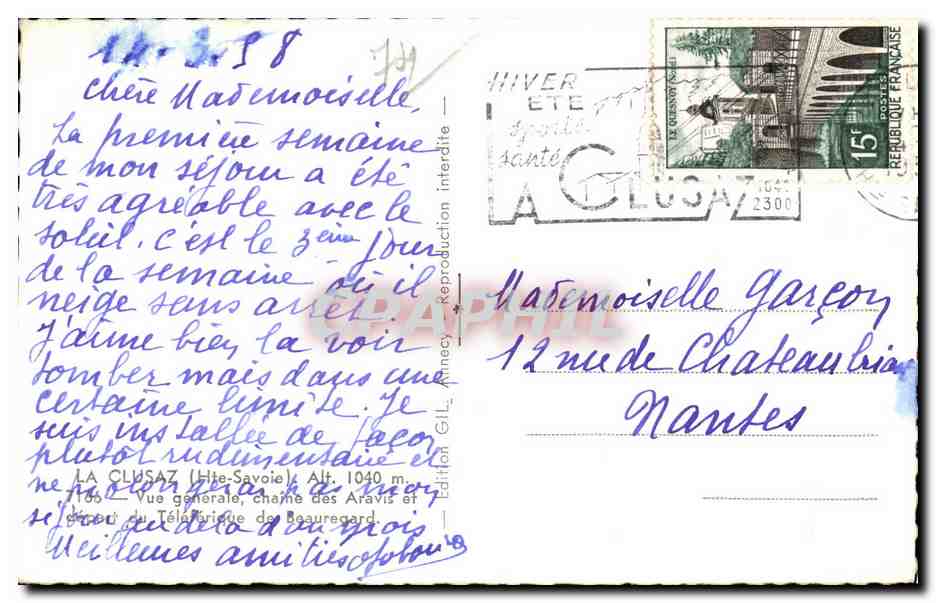 3.58
Chère Mademoiselle,
La première semaine
de mon séjour a été
très agréable avec le
soleil. C'est le 3ème jour
de la semaine où il
neige sans arrêt.
J'aime bien la voir
tomber mais dans une
certaine limite. Je
suis installée de façon
plutôt rudimentaire et
ne prolongerai pas mon
séjour au delà d'un mois
Meilleures amitiés
LA CLUSAZ (Hte-Savoie). Alt. 1040 m.
7166 — Vue générale, chaîne des Aravis et
départ du Téléférique de Beauregard.
Edition GIL, Annecy - Reproduction interdite
CPAPHIL
HIVER
ETE
sports
santé
LA CLUSAZ
1040
2300
LE QUESNOY (Nord)
15F
POSTES
REPUBLIQUE FRANÇAISE
Mademoiselle Garçon
12 rue de Chateaubriand
Nantes